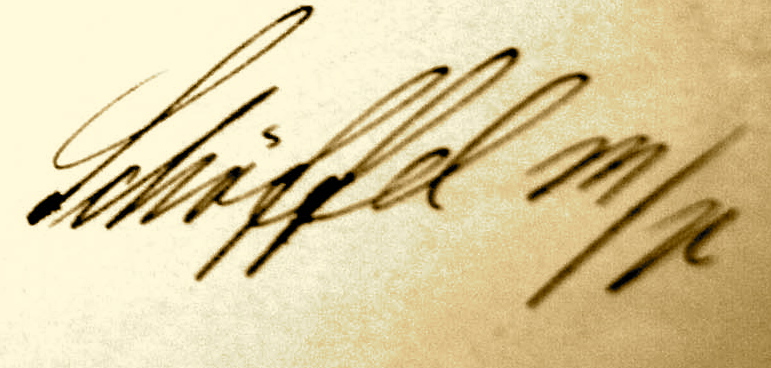 Schöffel m/p